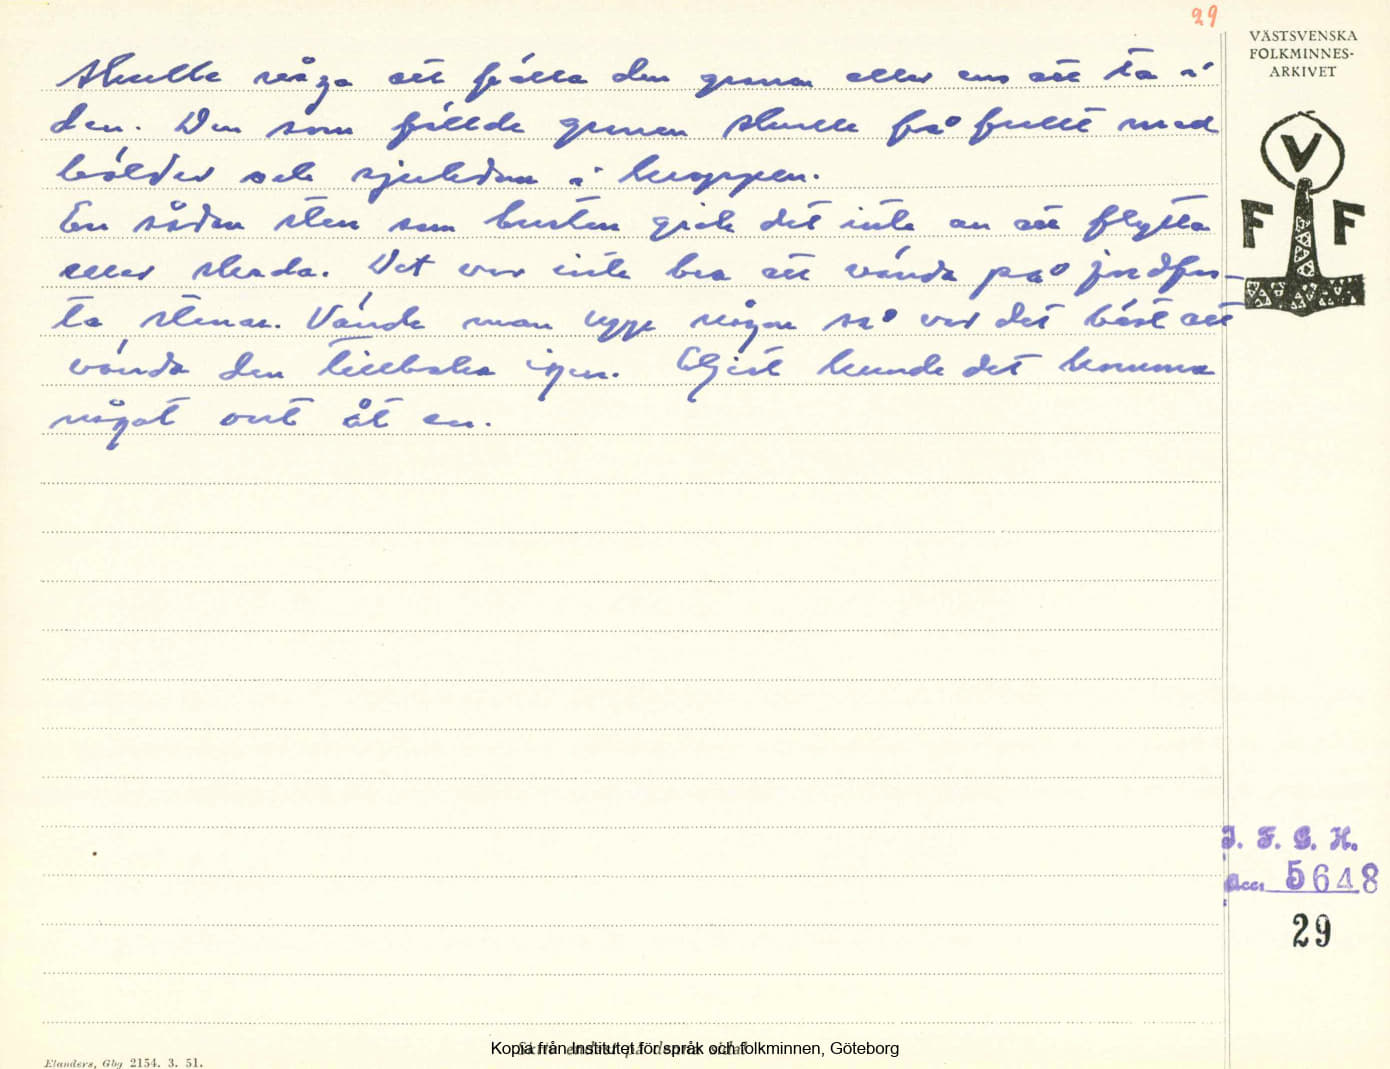 29
VÄSTSVENSKA
FOLKMINNES-
ARKIVET
V
F F
skulle våga att fälla den granen eller ens att ta i
den. Den som fällde granen skulle få fullt med
bölder och sjukdom i kroppen.
En sådan sten som busken gick det inte an att flytta
eller skada. Det var inte bra att vända på jordfas-
ta stenar. Vände man upp någon så var det bäst att
vända den tillbaka igen. Eljest kunde det komma
något ont åt en.
I. F. G. H.
Acc. 5648
29
Kopia från Institutet för språk och folkminnen, Göteborg
Elanders, Gbg 2154. 3. 51.